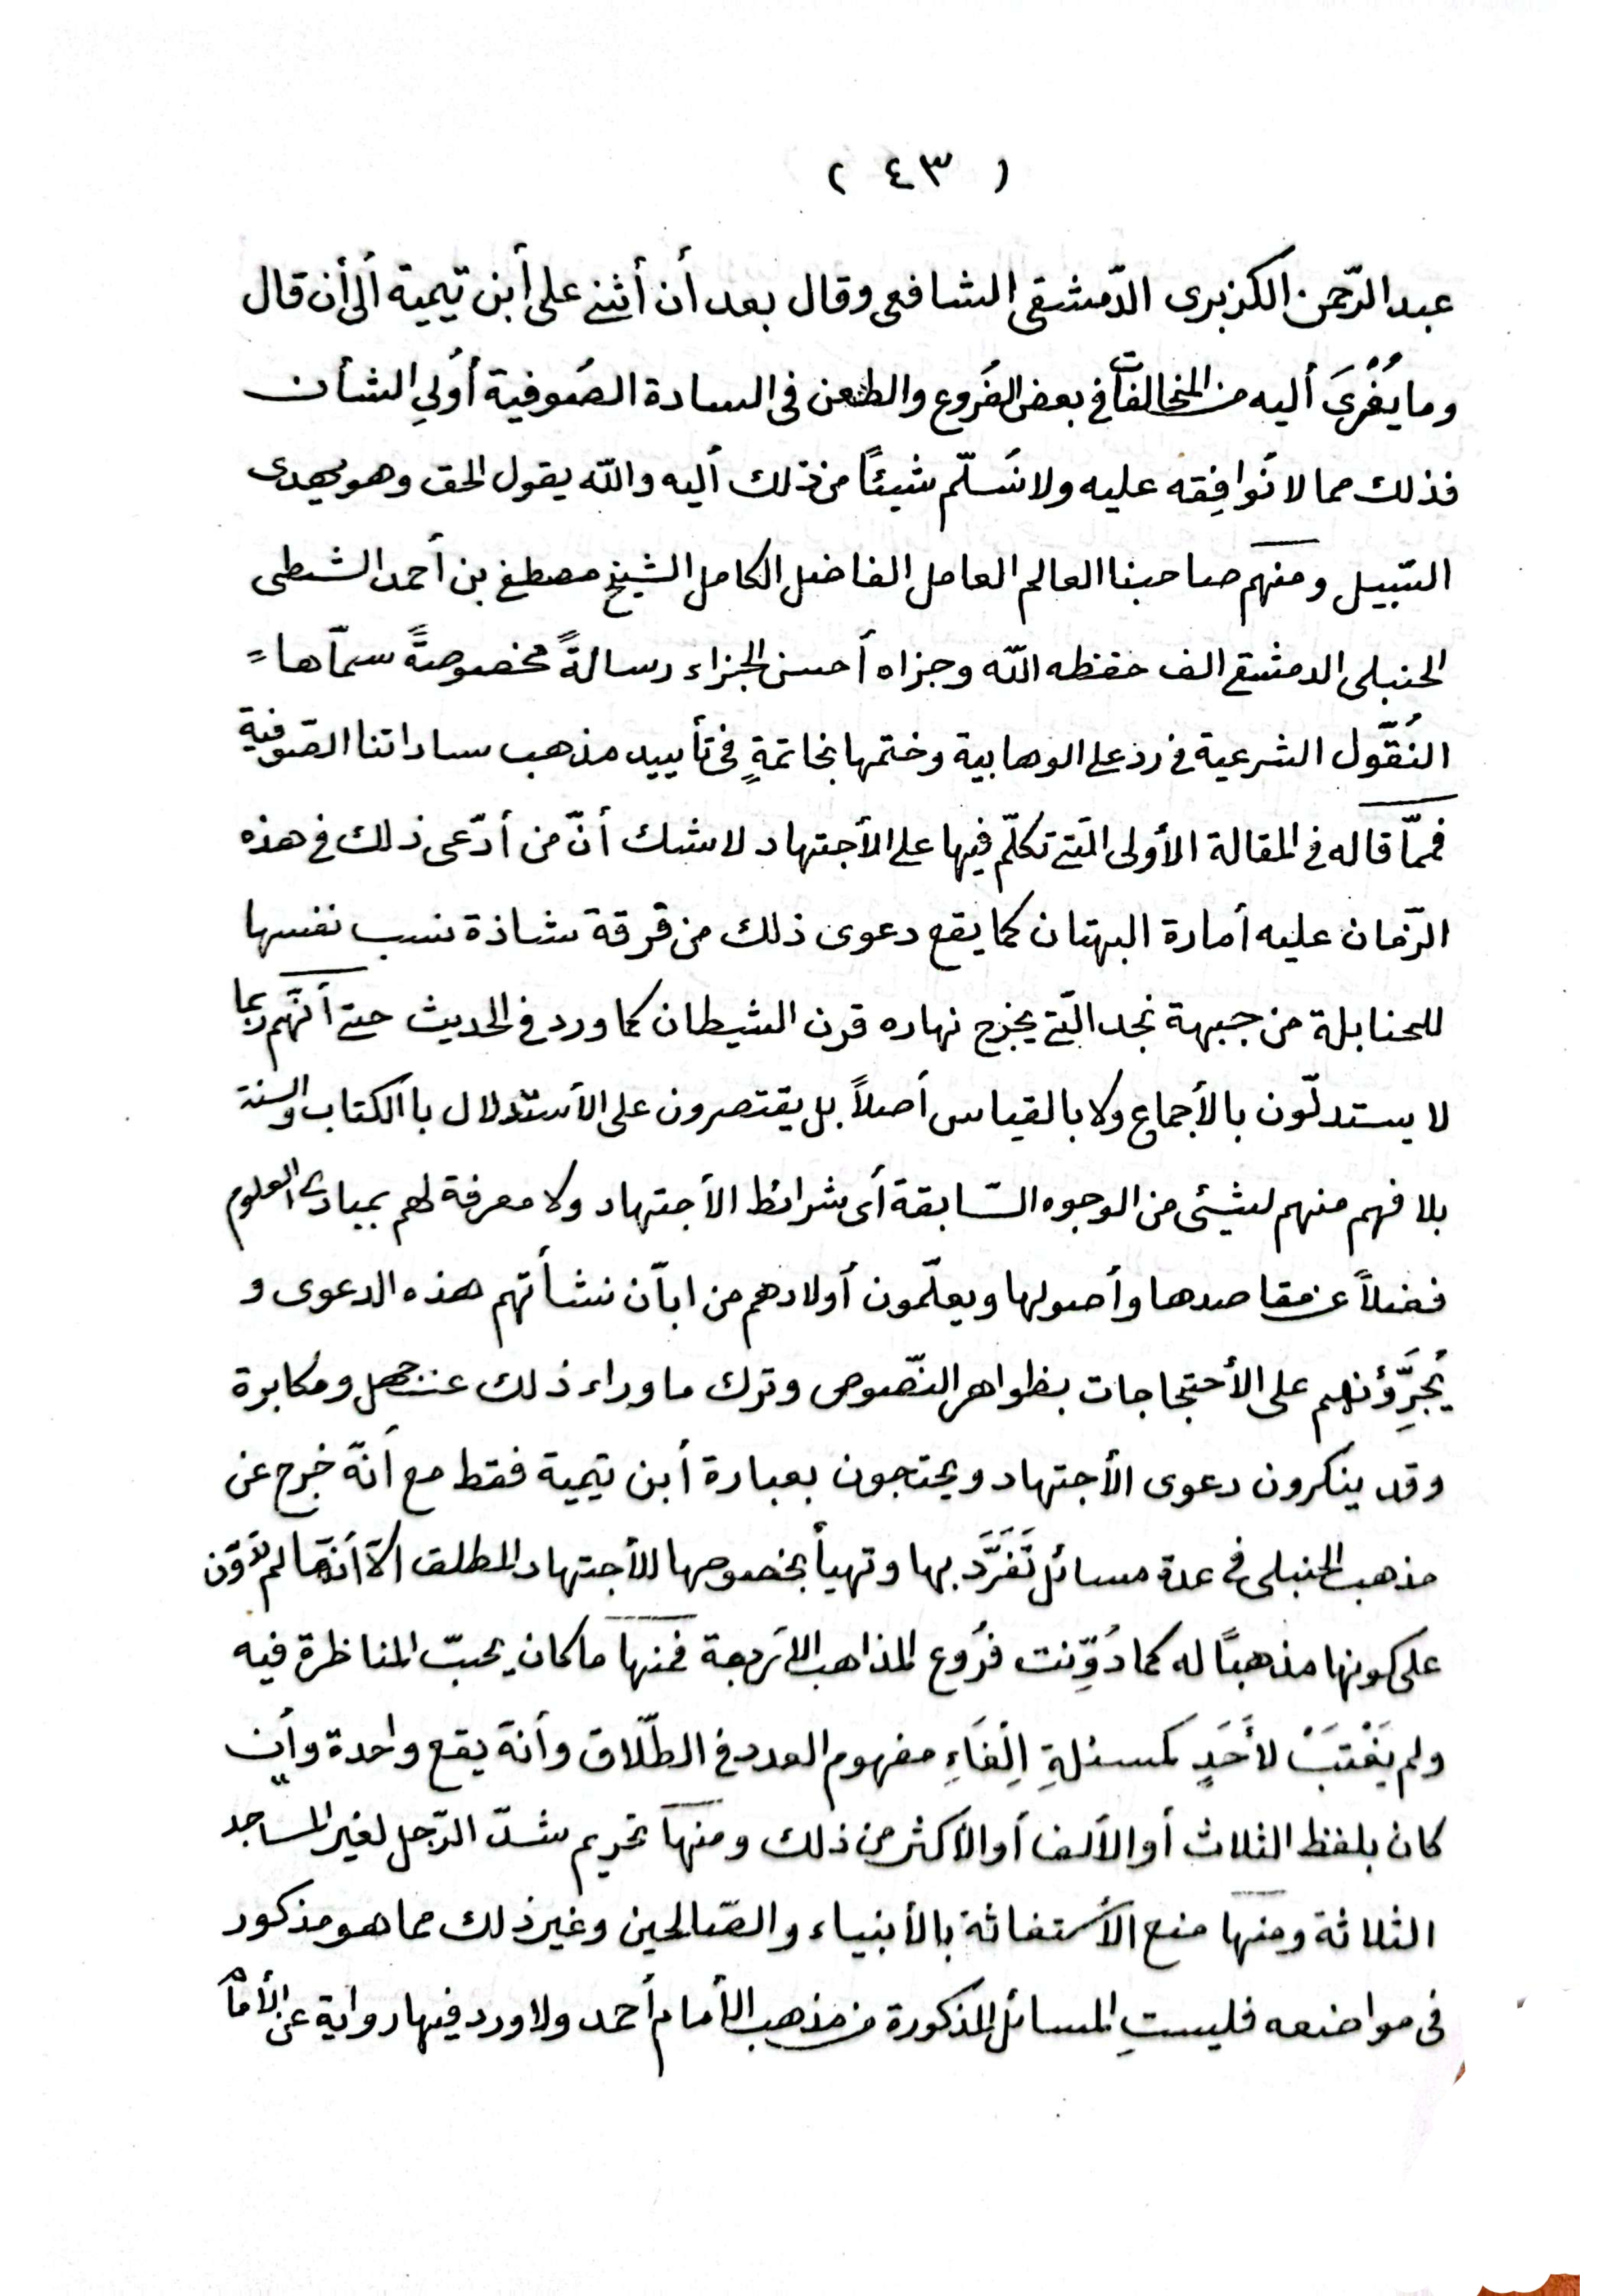 ( ٤٣ )
عبد الرّحمن الكزبرى الدّمشقى الشافعى وقال بعد أن أثنى على أبن تيمية ألى أن قال
وما يُعْزىَ أليه من المخالفات فى بعض الفُروع والطعن فى السادة الصُوفية أولِي الشأن
فذلك مما لا نُوافِقه عليه ولا نُسَلّم شيئًا من ذلك أليه والله يقول الحق وهو يهدى
السّبيل ومنهم صاحبنا العالم العامل الفاضل الكامل الشيخ مصطفى بن أحمد الشطى
الحنبلى الدمشقى الف حفظه الله وجزاه أحسن الجزاء رسالةً مخصوصةً سمّاها =
النُقُول الشرعية فى رد على الوهابية وختمها بخاتمةٍ فى تأييد مذهب ساداتنا الصّوفية
فممّا قاله فى المقالة الأولى الّتى تكلّم فيها على الأجتهاد لا شك أنّ من أدّعى ذلك فى هذه
الزّمان عليه أمارة البهتان كما يقع دعوى ذلك من فرقة شاذة نسب نفسها
للحنابلة من جبهة نجد الّتى يخرج نهاره قرن الشيطان كما ورد فى الحديث حتى أنّهم ربما
لا يستدلّون بالأجماع ولا بالقياس أصلاً بل يقتصرون على الأستدلال باالكتاب والسنة
بلا فهم منهم لشيئى من الوجوه السّابقة أى شرائط الأجتهاد ولا معرفة لهم بمبادئ العلوم
فضلاً عن مقاصدها وأصولها ويعلّمون أولادهم من ابّان نشأتهم هذه الدعوى و
يُجرِّؤنهم على الأحتجاجات بظواهر النّصوص وترك ماوراء ذلك عن جهل ومكابرة
وقد ينكرون دعوى الأجتهاد ويحتجون بعبارة أبن تيمية فقط مع أنّه خرج عن
مذهب الحنبلى فى عدة مسائل تَفَرَّدَ بها وتهيأ بخصوصها للأجتهاد المطلق الاّ أنّها لم تدوّن
على كونها مذهبًا له كما دُوِّنت فرُوع المذاهب الأربعة فمنها ما كان يحبّ المناظرة فيه
ولم يَغْتَبْ لأَحَدٍ كمسئلةِ اِلْغَاءِ مفهوم العدد فى الطّلاق وأنّه يقع واحدة وأين
كان بلفظ الثلاث أو الألف أو الأكثر من ذلك ومنها تحريم شدّ الرّحل لغير المساجد
الثلاثة ومنها منع الأستغاثة بالأنبياء والصّالحين وغير ذلك مما هو مذكور
فى مواضعه فليستِ المسائل المذكورة من مذهب الأمام أحمد ولا ورد فيها رواية عن الأمام